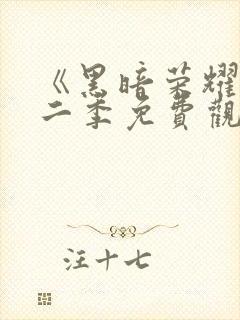 《黑暗荣耀
二季免費觀
汪十七